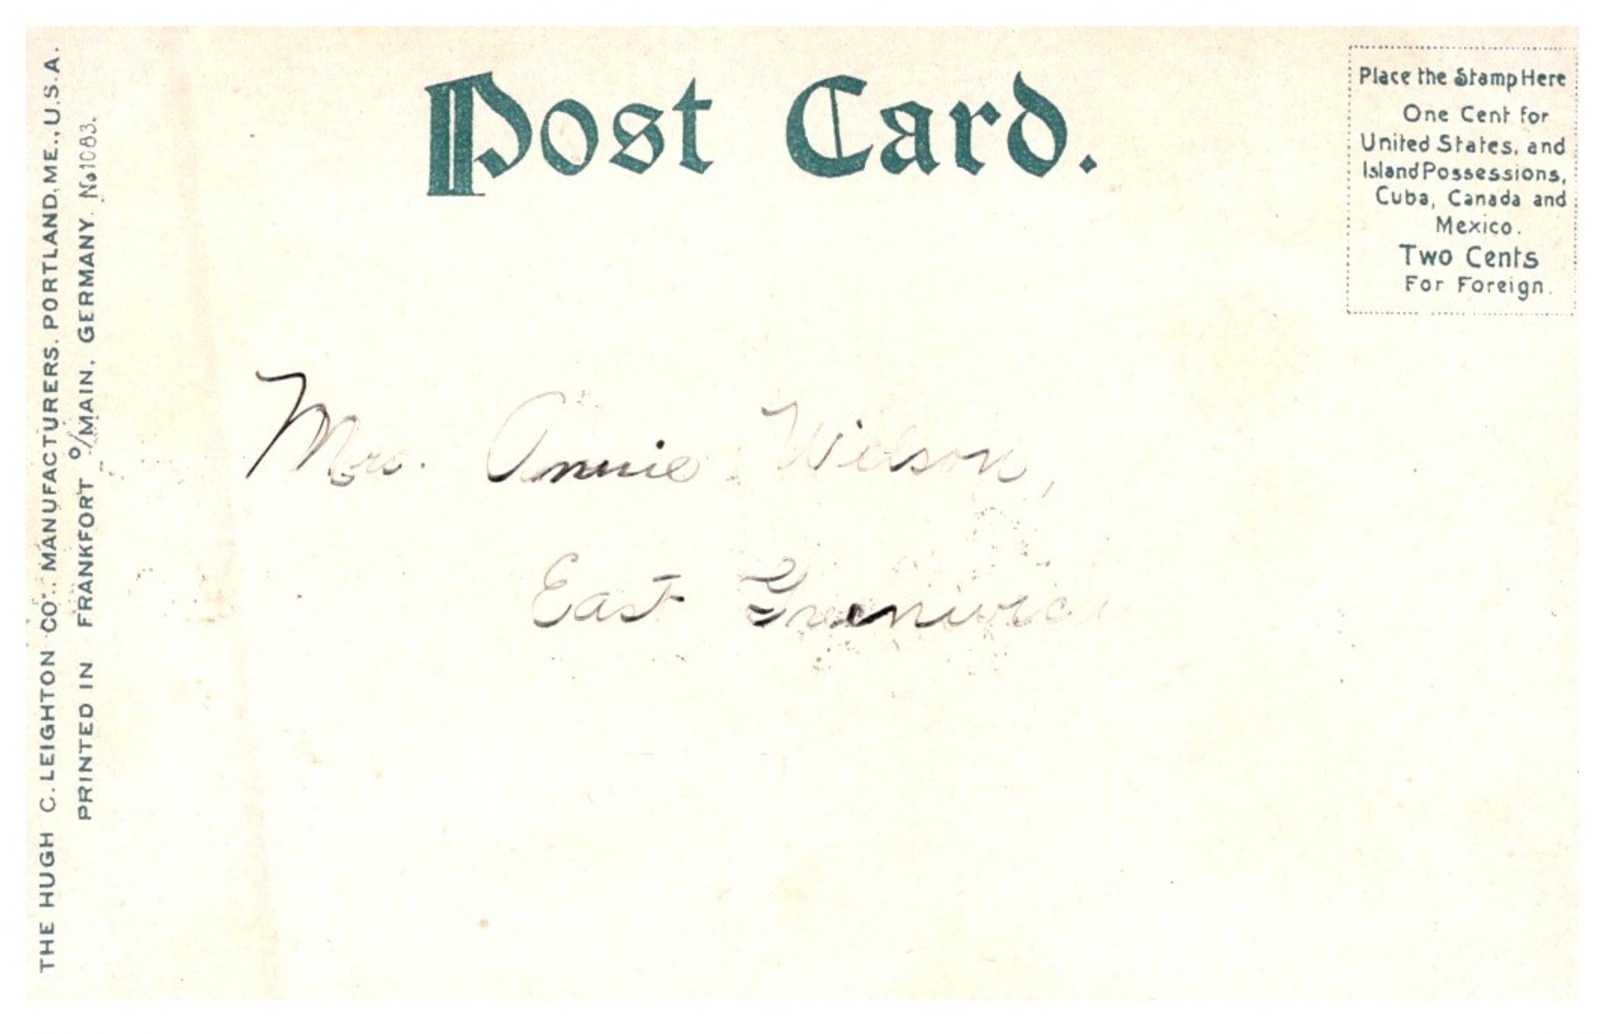 THE HUGH C. LEIGHTON CO., MANUFACTURERS, PORTLAND, ME., U.S.A.
PRINTED IN FRANKFORT o/MAIN, GERMANY. No 1083.
Post Card.
Place the Stamp Here
One Cent for
United States, and
Island Possessions,
Cuba, Canada and
Mexico.
Two Cents
For Foreign.
Mrs. Annie Wilson,
East Greenwic